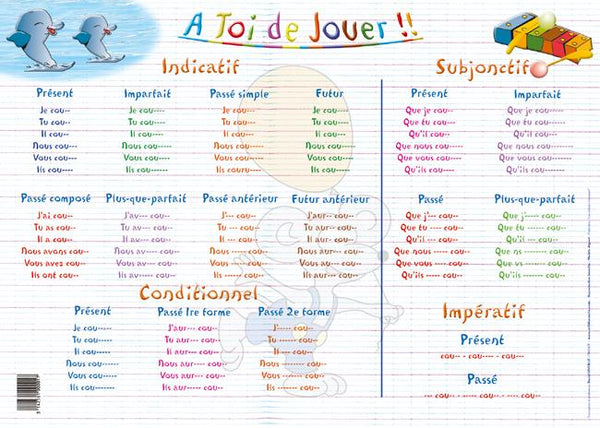 A Toi de Jouer !!
Indicatif
Subjonctif
Présent Imparfait Passé simple Futur
Présent Imparfait
Je cou-- Je cou---- Je couru--- Je cou----
Tu cou-- Tu cou---- Tu cou---- Tu cou----
Il cou-- Il cou---- Il cou--- Il cou---
Nous cou---- Nous cou----- Nous cou----- Nous cou-----
Vous cou--- Vous cou---- Vous cou----- Vous cou----
Ils cou---- Ils cou----- Ils cou----- Ils cou-----
Que je cou--- Que je cou------
Que tu cou--- Que tu cou------
Qu'il cou--- Qu'il cou---
Que nous cou---- Que nous cou-------
Que vous cou---- Que vous cou------
Qu'ils cou---- Qu'ils cou------
Passé composé Plus-que-parfait Passé antérieur Futur antérieur
Passé Plus-que-parfait
J'ai cou-- J'av--- cou-- J'--- cou-- J'aur-- cou--
Tu as cou-- Tu av--- cou-- Tu --- cou-- Tu aur-- cou--
Il a cou-- Il av--- cou-- Il --- cou-- Il aur-- cou--
Nous avons cou-- Nous av---- cou-- Nous ----- cou-- Nous aur--- cou--
Vous avez cou-- Vous av--- cou-- Vous ----- cou-- Vous aur-- cou--
Ils ont cou-- Ils av----- cou-- Ils ------ cou-- Ils aur--- cou--
Que j'--- cou-- Que j'----- cou--
Que tu ---- cou-- Que tu ----- cou--
Qu'il --- cou-- Qu'il --- cou--
Que nous ----- cou-- Que ns ------- cou--
Que vous ---- cou-- Que vs ------ cou--
Qu'ils ----- cou-- Qu'ils ------ cou--
Conditionnel
Impératif
Présent Passé 1re forme Passé 2e forme
Je cou----- J'aur--- cou-- J'----- cou--
Tu cou----- Tu aur--- cou-- Tu ----- cou--
Il cou----- Il aur--- cou-- Il --- cou--
Nous cou------ Nous aur---- cou-- Nous ------- cou--
Vous cou----- Vous aur--- cou-- Vous ------ cou--
Ils cou------- Ils aur----- cou-- Ils ------ cou--
Présent
cou-- - cou---- - cou---
Passé
--- cou-- - ----- cou-- - ---- cou--